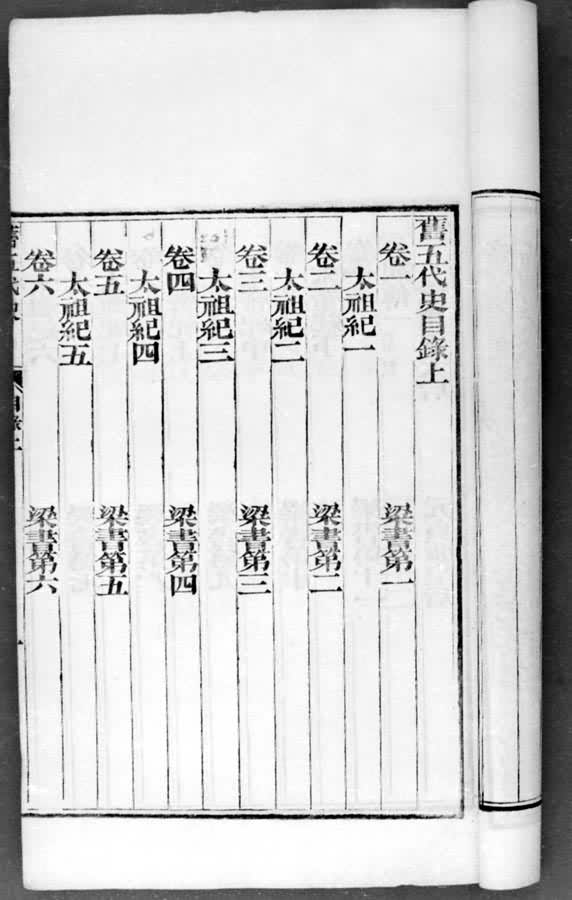 舊五代史目錄上
卷一 梁書第一
太祖紀一
卷二 梁書第二
太祖紀二
卷三 梁書第三
太祖紀三
卷四 梁書第四
太祖紀四
卷五 梁書第五
太祖紀五
卷六 梁書第六